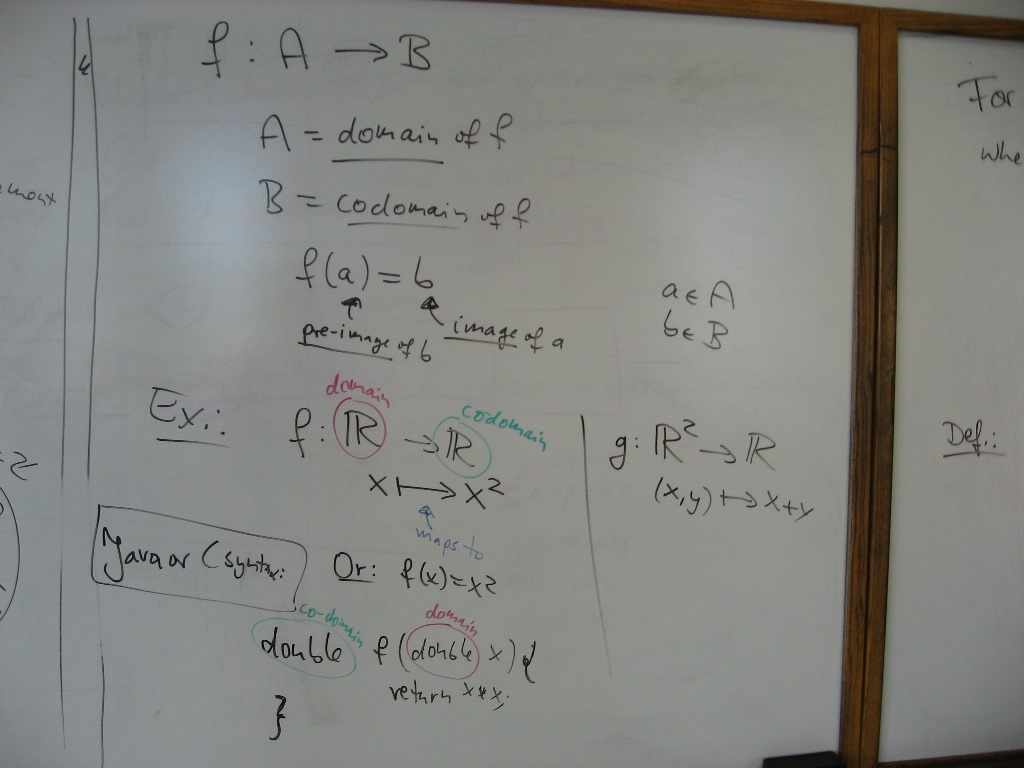 f : A → B
A = domain of f
B = codomain of f
f(a) = b
pre-image of b
image of a
a ∈ A
b ∈ B
Ex.:
domain
codomain
f : ℝ → ℝ
x ↦ x²
maps to
Or: f(x) = x²
g: ℝ² → ℝ
(x,y) ↦ x+y
Java or C syntax:
co-domain
domain
double f (double x) {
return x*x;
}
For
whe
Def.: